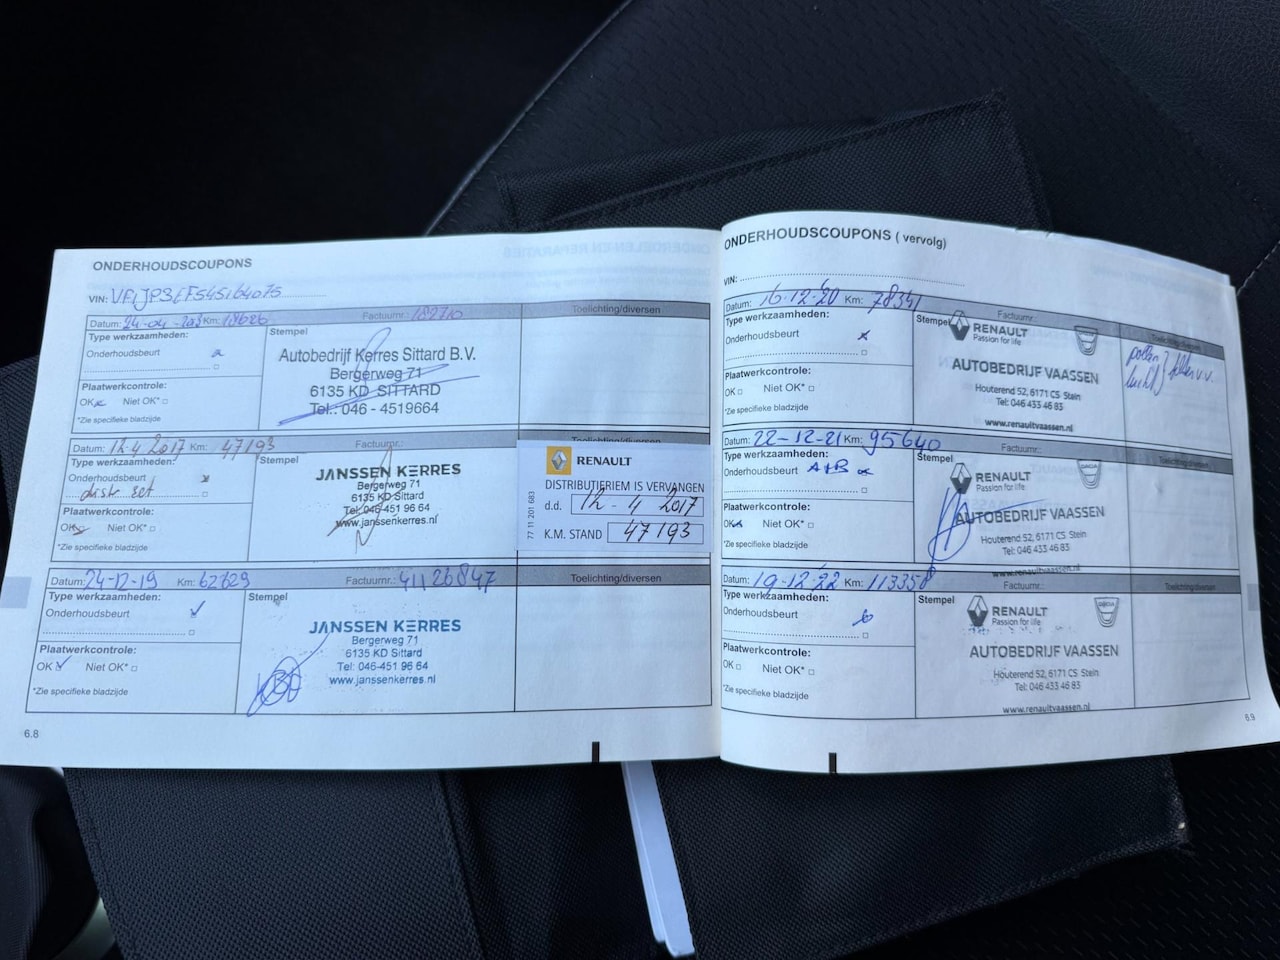 ONDERHOUDSCOUPONS
VIN:
Datum: Km: Factuurnr.: Toelichting/diversen
Type werkzaamheden:
Onderhoudsbeurt
Plaatwerkcontrole:
OK Niet OK*
*Zie specifieke bladzijde
Stempel
Autobedrijf Kerres Sittard B.V.
Bergerweg 71
6135 KD SITTARD
Tel.: 046 - 4519664
Datum: 12-4 2017 Km: 47193 Factuurnr.:
Type werkzaamheden:
Onderhoudsbeurt
distr set
Plaatwerkcontrole:
OK Niet OK*
*Zie specifieke bladzijde
Stempel
JANSSEN KERRES
Bergerweg 71
6135 KD Sittard
Tel: 046-451 96 64
www.janssenkerres.nl
RENAULT
DISTRIBUTIERIEM IS VERVANGEN
d.d. 12-4 2017
K.M. STAND 47193
77 11 201 683
Datum: 24-12-19 Km: 62629 Factuurnr.: 41126847 Toelichting/diversen
Type werkzaamheden:
Onderhoudsbeurt
Plaatwerkcontrole:
OK Niet OK*
*Zie specifieke bladzijde
Stempel
JANSSEN KERRES
Bergerweg 71
6135 KD Sittard
Tel: 046-451 96 64
www.janssenkerres.nl
6.8
ONDERHOUDSCOUPONS ( vervolg)
VIN:
Datum: 16-12-20 Km: 78341 Factuurnr.: Toelichting/diversen
Type werkzaamheden:
Onderhoudsbeurt
Plaatwerkcontrole:
OK Niet OK*
*Zie specifieke bladzijde
Stempel
RENAULT
Passion for life
AUTOBEDRIJF VAASSEN
Houterend 52, 6171 CS Stein
Tel: 046 433 46 83
www.renaultvaassen.nl
pollen
lucht
filter v.v.
Datum: 22-12-21 Km: 95640
Type werkzaamheden:
Onderhoudsbeurt A+B
Plaatwerkcontrole:
OK Niet OK*
*Zie specifieke bladzijde
Stempel
RENAULT
Passion for life
AUTOBEDRIJF VAASSEN
Houterend 52, 6171 CS Stein
Tel: 046 433 46 83
www.renaultvaassen.nl
Datum: 19-12-22 Km: 113358 Factuurnr.: Toelichting/diversen
Type werkzaamheden:
Onderhoudsbeurt
Plaatwerkcontrole:
OK Niet OK*
*Zie specifieke bladzijde
Stempel
RENAULT
Passion for life
DACIA
AUTOBEDRIJF VAASSEN
Houterend 52, 6171 CS Stein
Tel: 046 433 46 83
www.renaultvaassen.nl
6.9